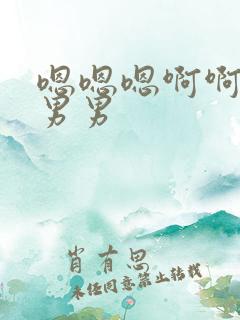 嗯嗯嗯啊啊
男男
肖有恩
未经同意禁止转载